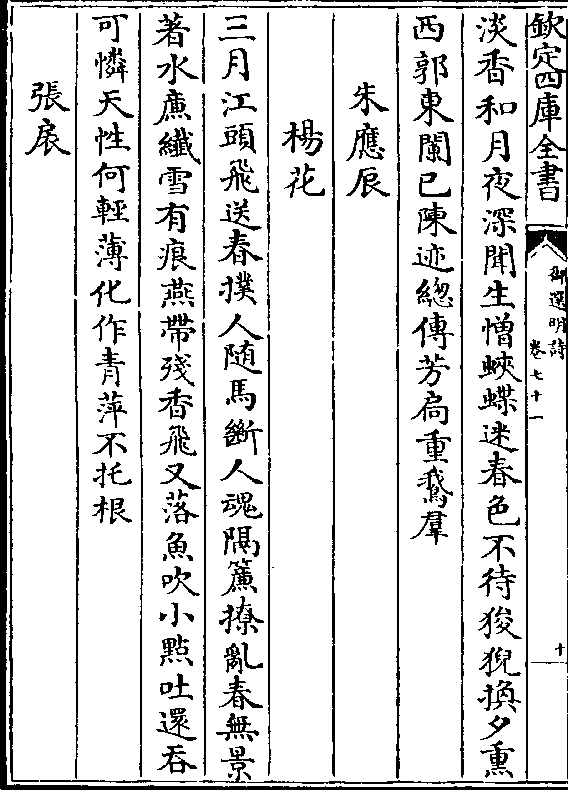 欽定四庫全書
御選明詩
卷七十一
十
淡香和月夜深聞生憎蛺蝶迷春色不待狻猊換夕熏
西郭東闌已陳迹總傳芳扁重鵞羣
朱應辰
楊花
三月江頭飛送春撲人隨馬斷人魂隔簾撩亂春無景
著水廉纖雪有痕燕帶殘香飛又落魚吹小點吐還吞
可憐天性何輕薄化作青萍不托根
張扆